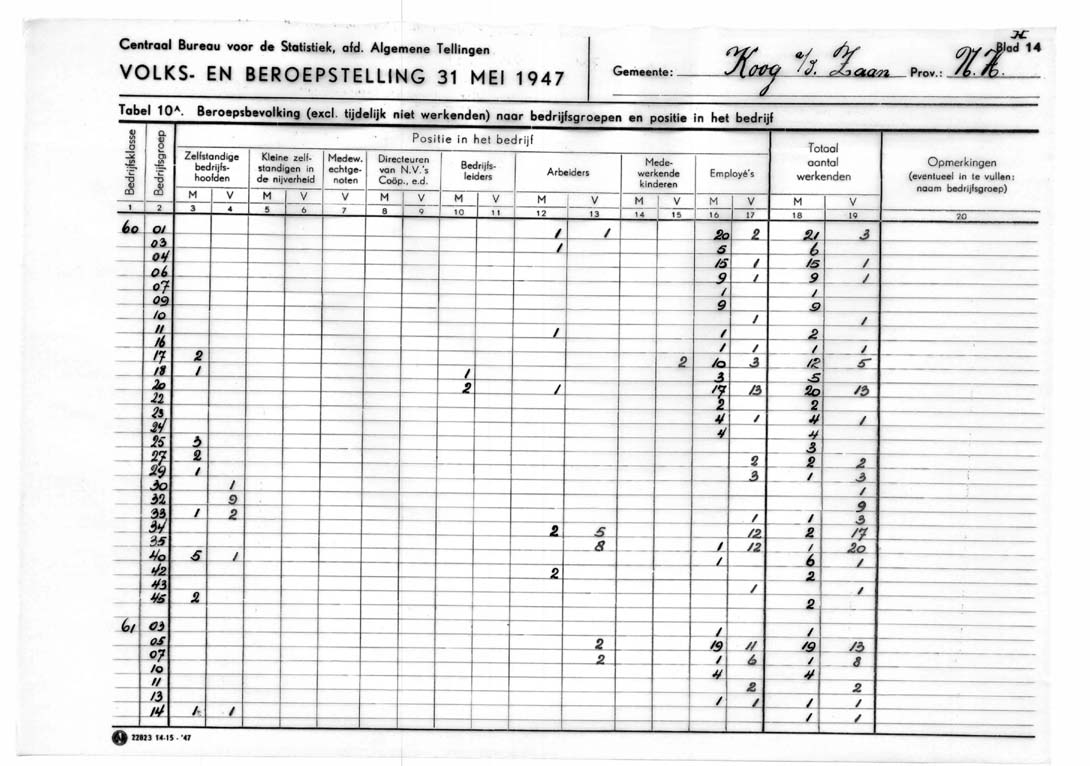 Centraal Bureau voor de Statistiek, afd. Algemene Tellingen
VOLKS- EN BEROEPSTELLING 31 MEI 1947
Gemeente: Koog a/d. Zaan Prov.: N.H.
Blad 14
Tabel 10A. Beroepsbevolking (excl. tijdelijk niet werkenden) naar bedrijfsgroepen en positie in het bedrijf
Bedrijfsklasse
Bedrijfsgroep
Positie in het bedrijf
Zelfstandige bedrijfs-hoofden
Kleine zelf-standigen in de nijverheid
Medew. echtge-noten
Directeuren van N.V.'s Coöp., e.d.
Bedrijfs-leiders
Arbeiders
Mede-werkende kinderen
Employé's
Totaal aantal werkenden
Opmerkingen (eventueel in te vullen: naam bedrijfsgroep)
M V M V V M V M V M V M V M V M V
1 2 3 4 5 6 7 8 9 10 11 12 13 14 15 16 17 18 19 20
60 01 1 1 20 2 21 3
03 1 5 6
04 15 1 15 1
06 9 1 9 1
07 1 1
09 9 9
10 1 1
11 1 1 2
16 1 1 1 1
17 2 2 10 3 12 5
18 1 1 3 5
20 2 1 17 13 20 13
22 2 2
23 4 1 4 1
24 4 4
25 3 3
27 2 2 2 2
29 1 3 1 3
30 1 1
32 9 9
33 1 2 1 1 3
34 2 5 12 2 17
35 8 1 12 1 20
40 5 1 1 6 1
42 2 2
43 1 1
45 2 2
61 03 1 1
05 2 19 11 19 13
07 2 1 6 1 8
10 4 4
11 2 2
13 1 1 1 1
14 1 1 1 1
22823 14-15 - '47